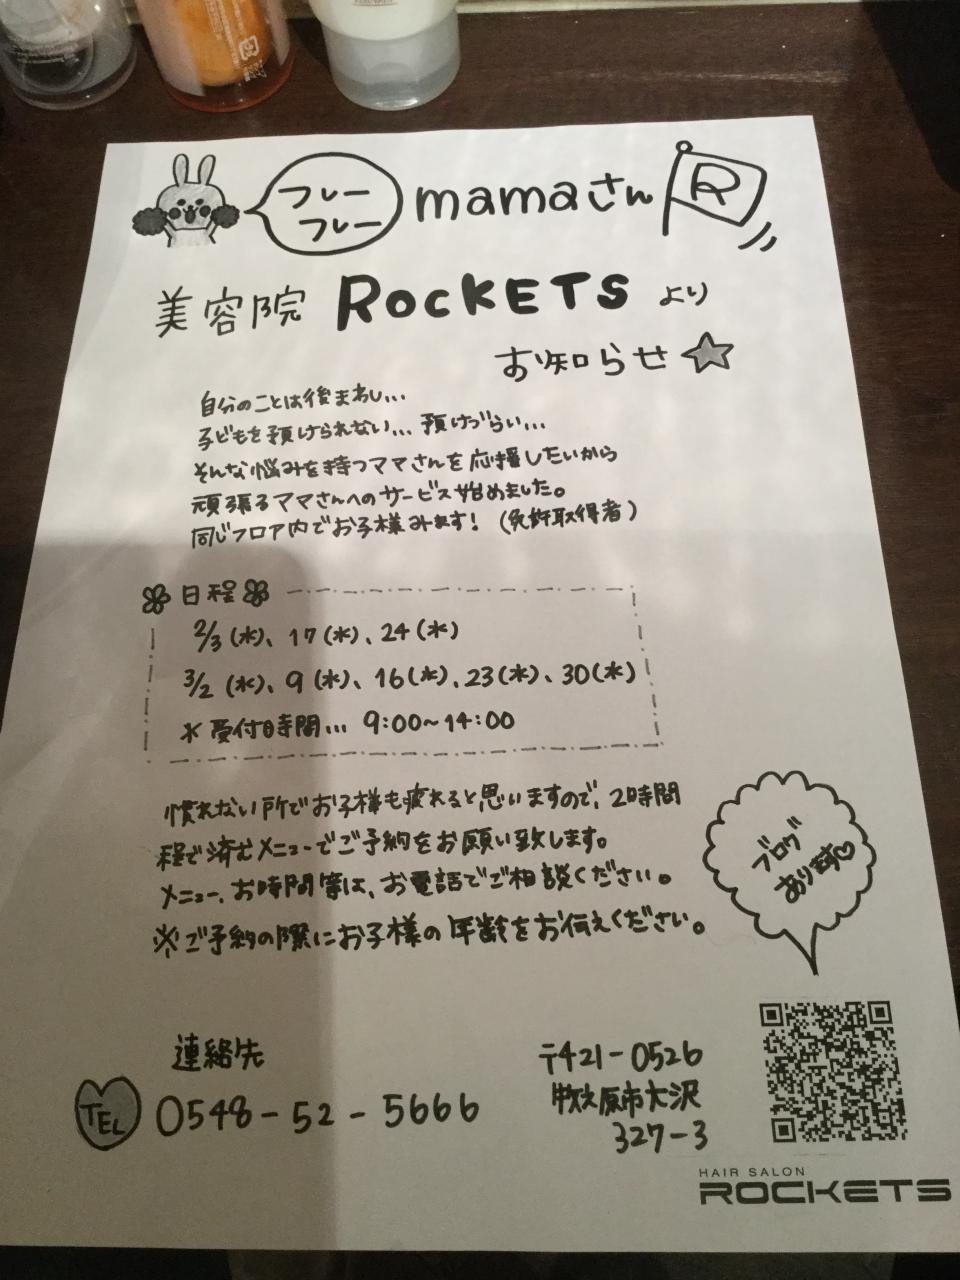 フレー
フレー
mamaさん
R
美容院 ROCKETS より
お知らせ
自分のことは後まわし...
子どもを預けられない... 預けづらい...
そんな悩みを持つママさんを応援したいから
頑張るママさんへのサービス始めました。
同じフロア内でお子様みます! (免許取得者)
日程
2/3(水)、17(水)、24(水)
3/2(水)、9(水)、16(水)、23(水)、30(水)
*受付時間... 9:00~14:00
慣れない所でお子様も疲れると思いますので、2時間
程で済むメニューでご予約をお願い致します。
メニュー、お時間等は、お電話でご相談ください。
※ご予約の際にお子様の年齢をお伝えください。
ブログ
あります♡
連絡先
TEL 0548-52-5666
〒421-0526
牧之原市大沢
327-3
HAIR SALON
ROCKETS